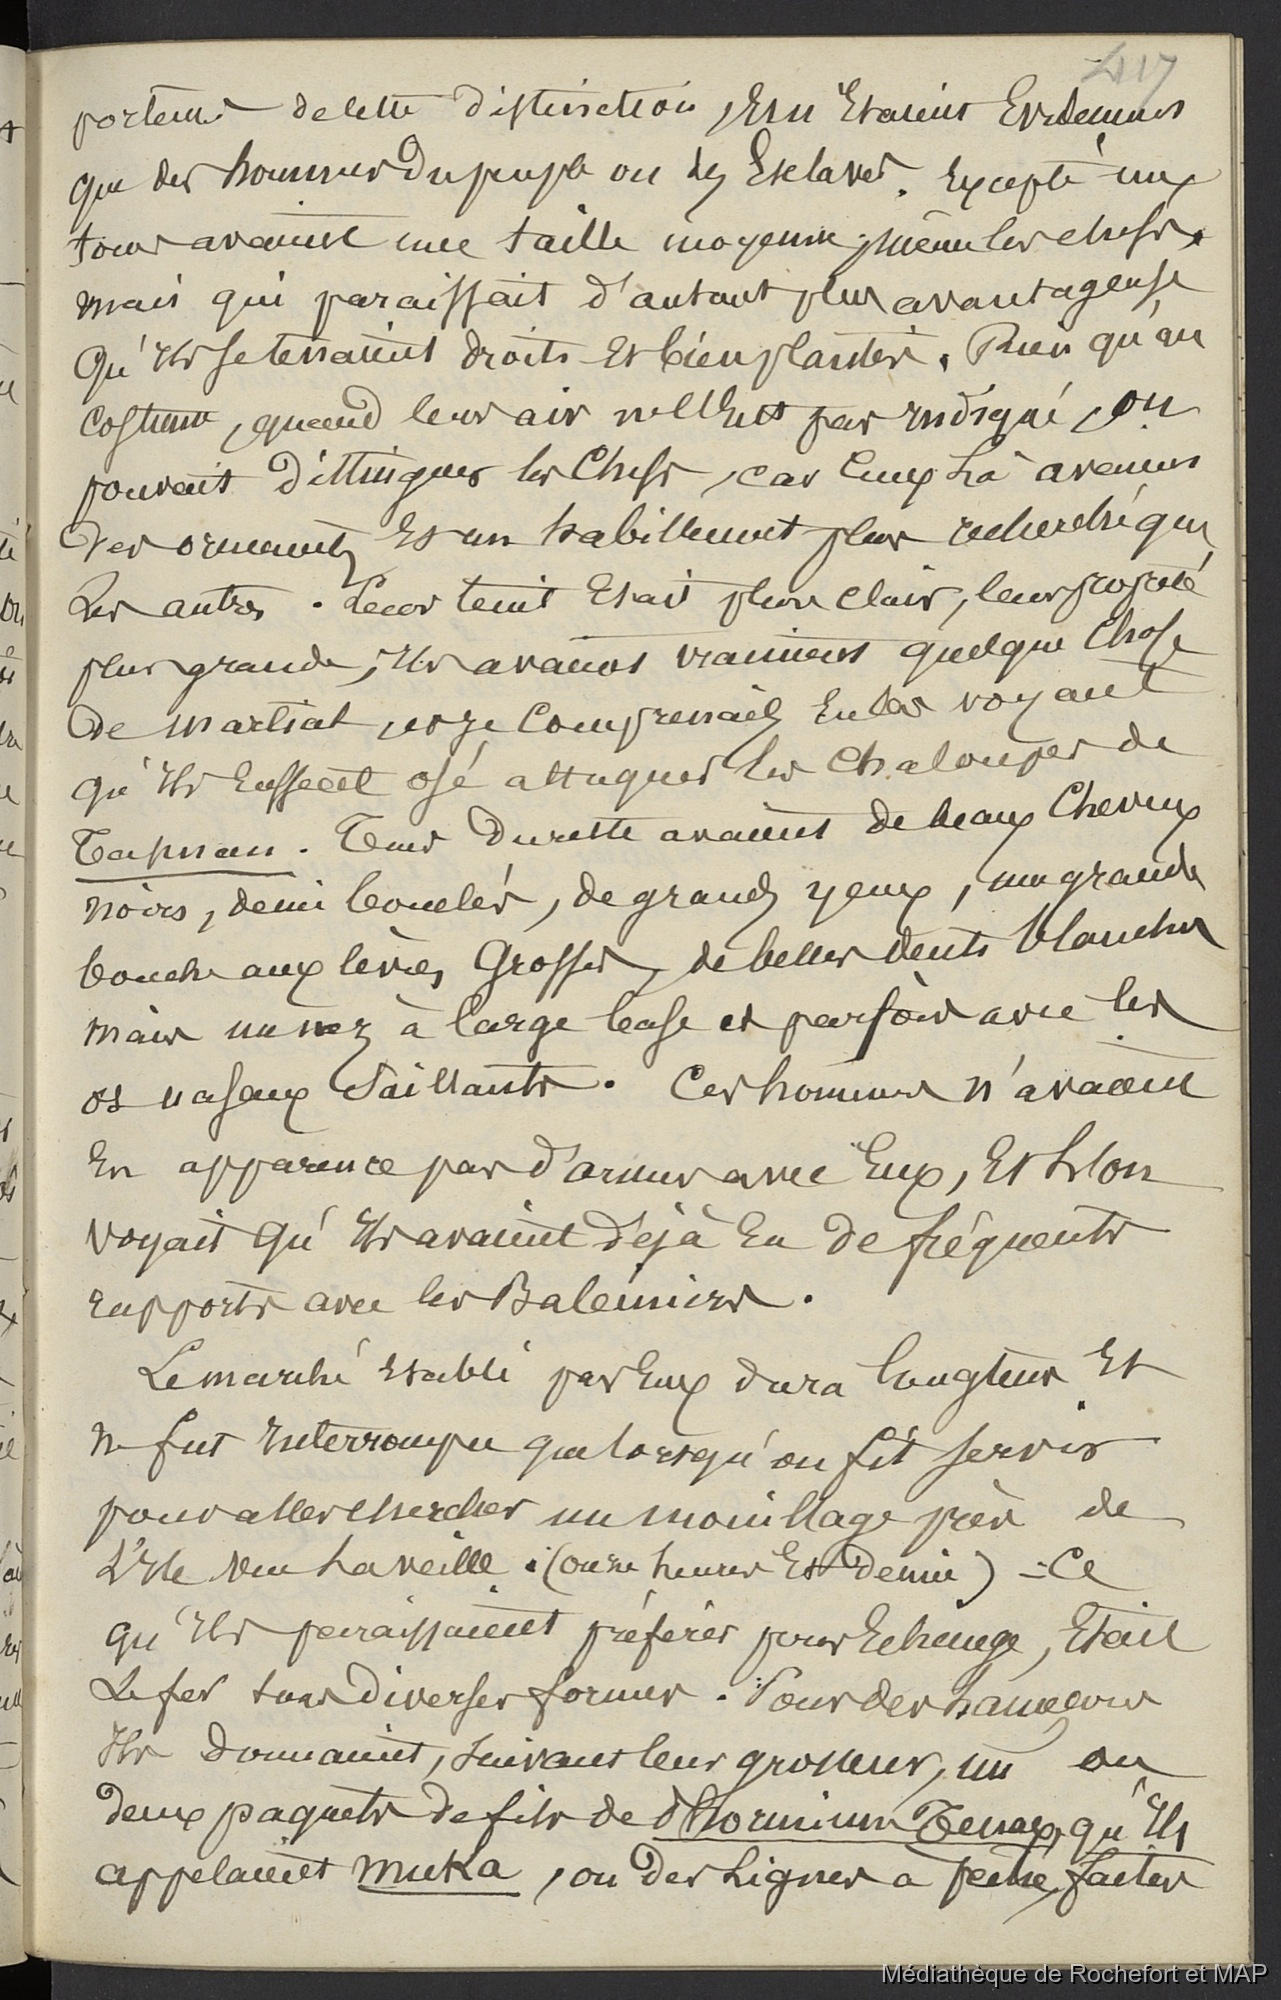 417
porteurs de cette distinction, Ce n'Etaient Evidemment
que des hommes du peuple ou des Esclaves. Excepté un,
tous avaient une taille moyenne, même les chefs,
mais qui paraissait d'autant plus avantageuse
qu'Ils se tenaient droits Et bien plantés. Rien qu'au
costume, quand leur air ne l'Eut pas Indiqué, on
pouvait distinguer les Chefs, car Eux là avaient
des ornements Et un habillement plus recherché que
Les autres. Leur teint Etait plus clair, leur propreté
plus grande, Ils avaient vraiment quelque chose
de martial, et je comprenais En les voyant
qu'Ils Eussent osé attaquer les chaloupes de
Tasman. Tous du reste avaient de beaux Cheveux
noirs, demi bouclés, de grands yeux, une grande
bouche aux lèvres Grosses, de belles dents blanches
mais un nez à large base et parfois avec les
os nasaux Saillants. Ces hommes n'avaient
En apparence pas d'armes avec Eux, Et L'on
voyait qu'Ils avaient déjà Eu de fréquents
rapports avec les Baleiniers.
Le marché Etabli par Eux dura longtems Et
ne fut Interrompu que lorsqu'on fit servir
pour aller chercher un mouillage près de
L'Ile vue La veille. (onze heures Et demie) - Ce
qu'Ils paraissaient préférer pour Echange, Etait
Le fer sous diverses formes. Pour des hameçons
Ils donnaient, suivant leur grosseur, un ou
deux paquets de fils de Phormium Tenax, qu'Ils
appelaient muka, ou des Lignes a pêche, faites
Médiathèque de Rochefort et MAP